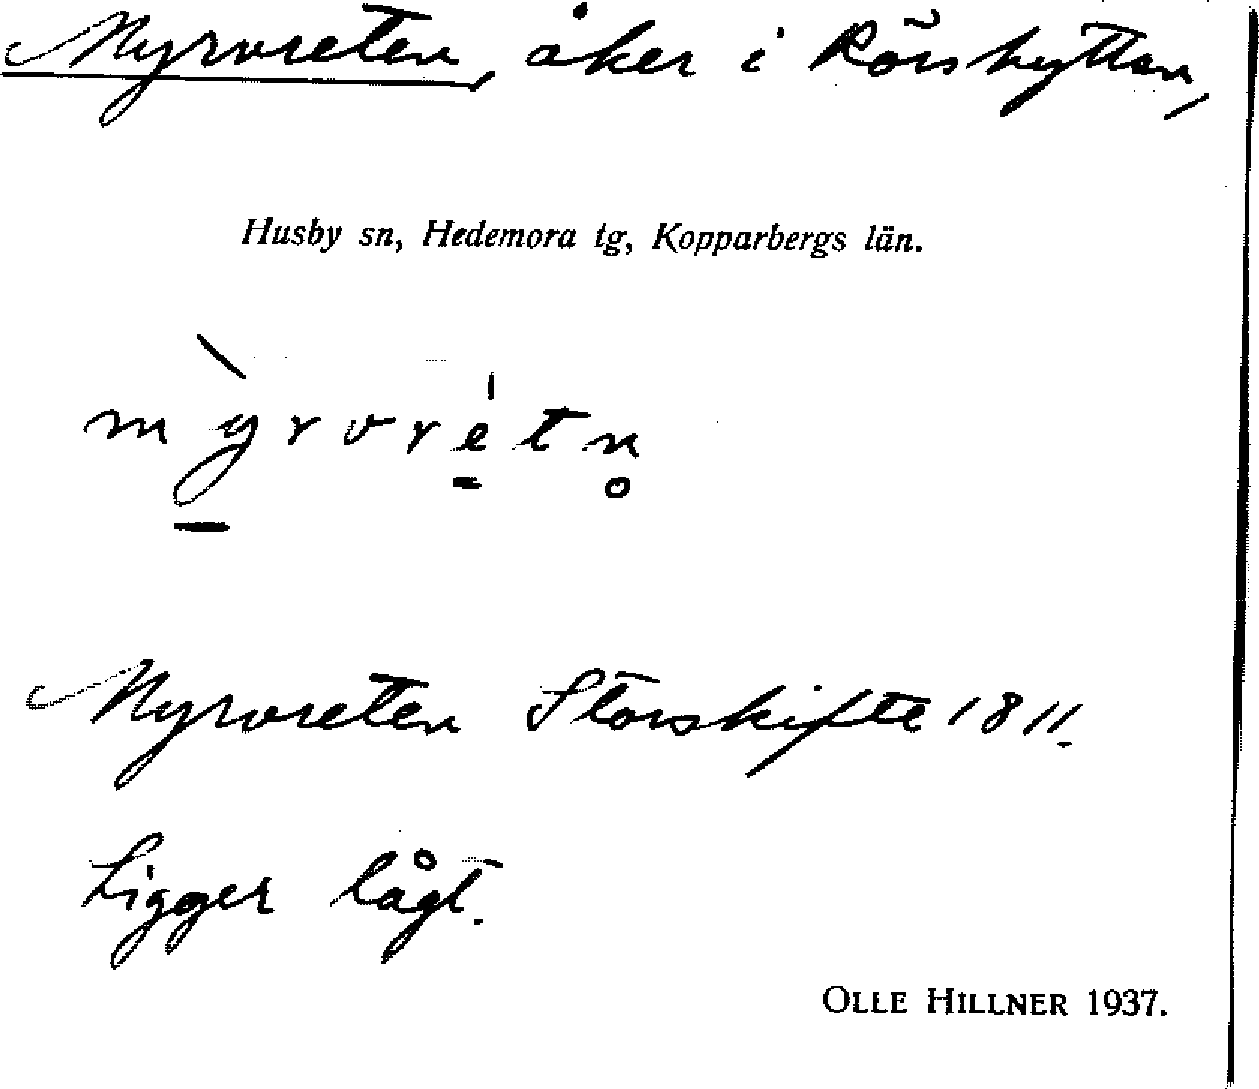 Myrvreten, åker i Rörshyttan,
Husby sn, Hedemora tg, Kopparbergs län.
my̠rvre̠tn̥
Myrvreten Storskifte 1811.
Ligger lågt.
OLLE HILLNER 1937.